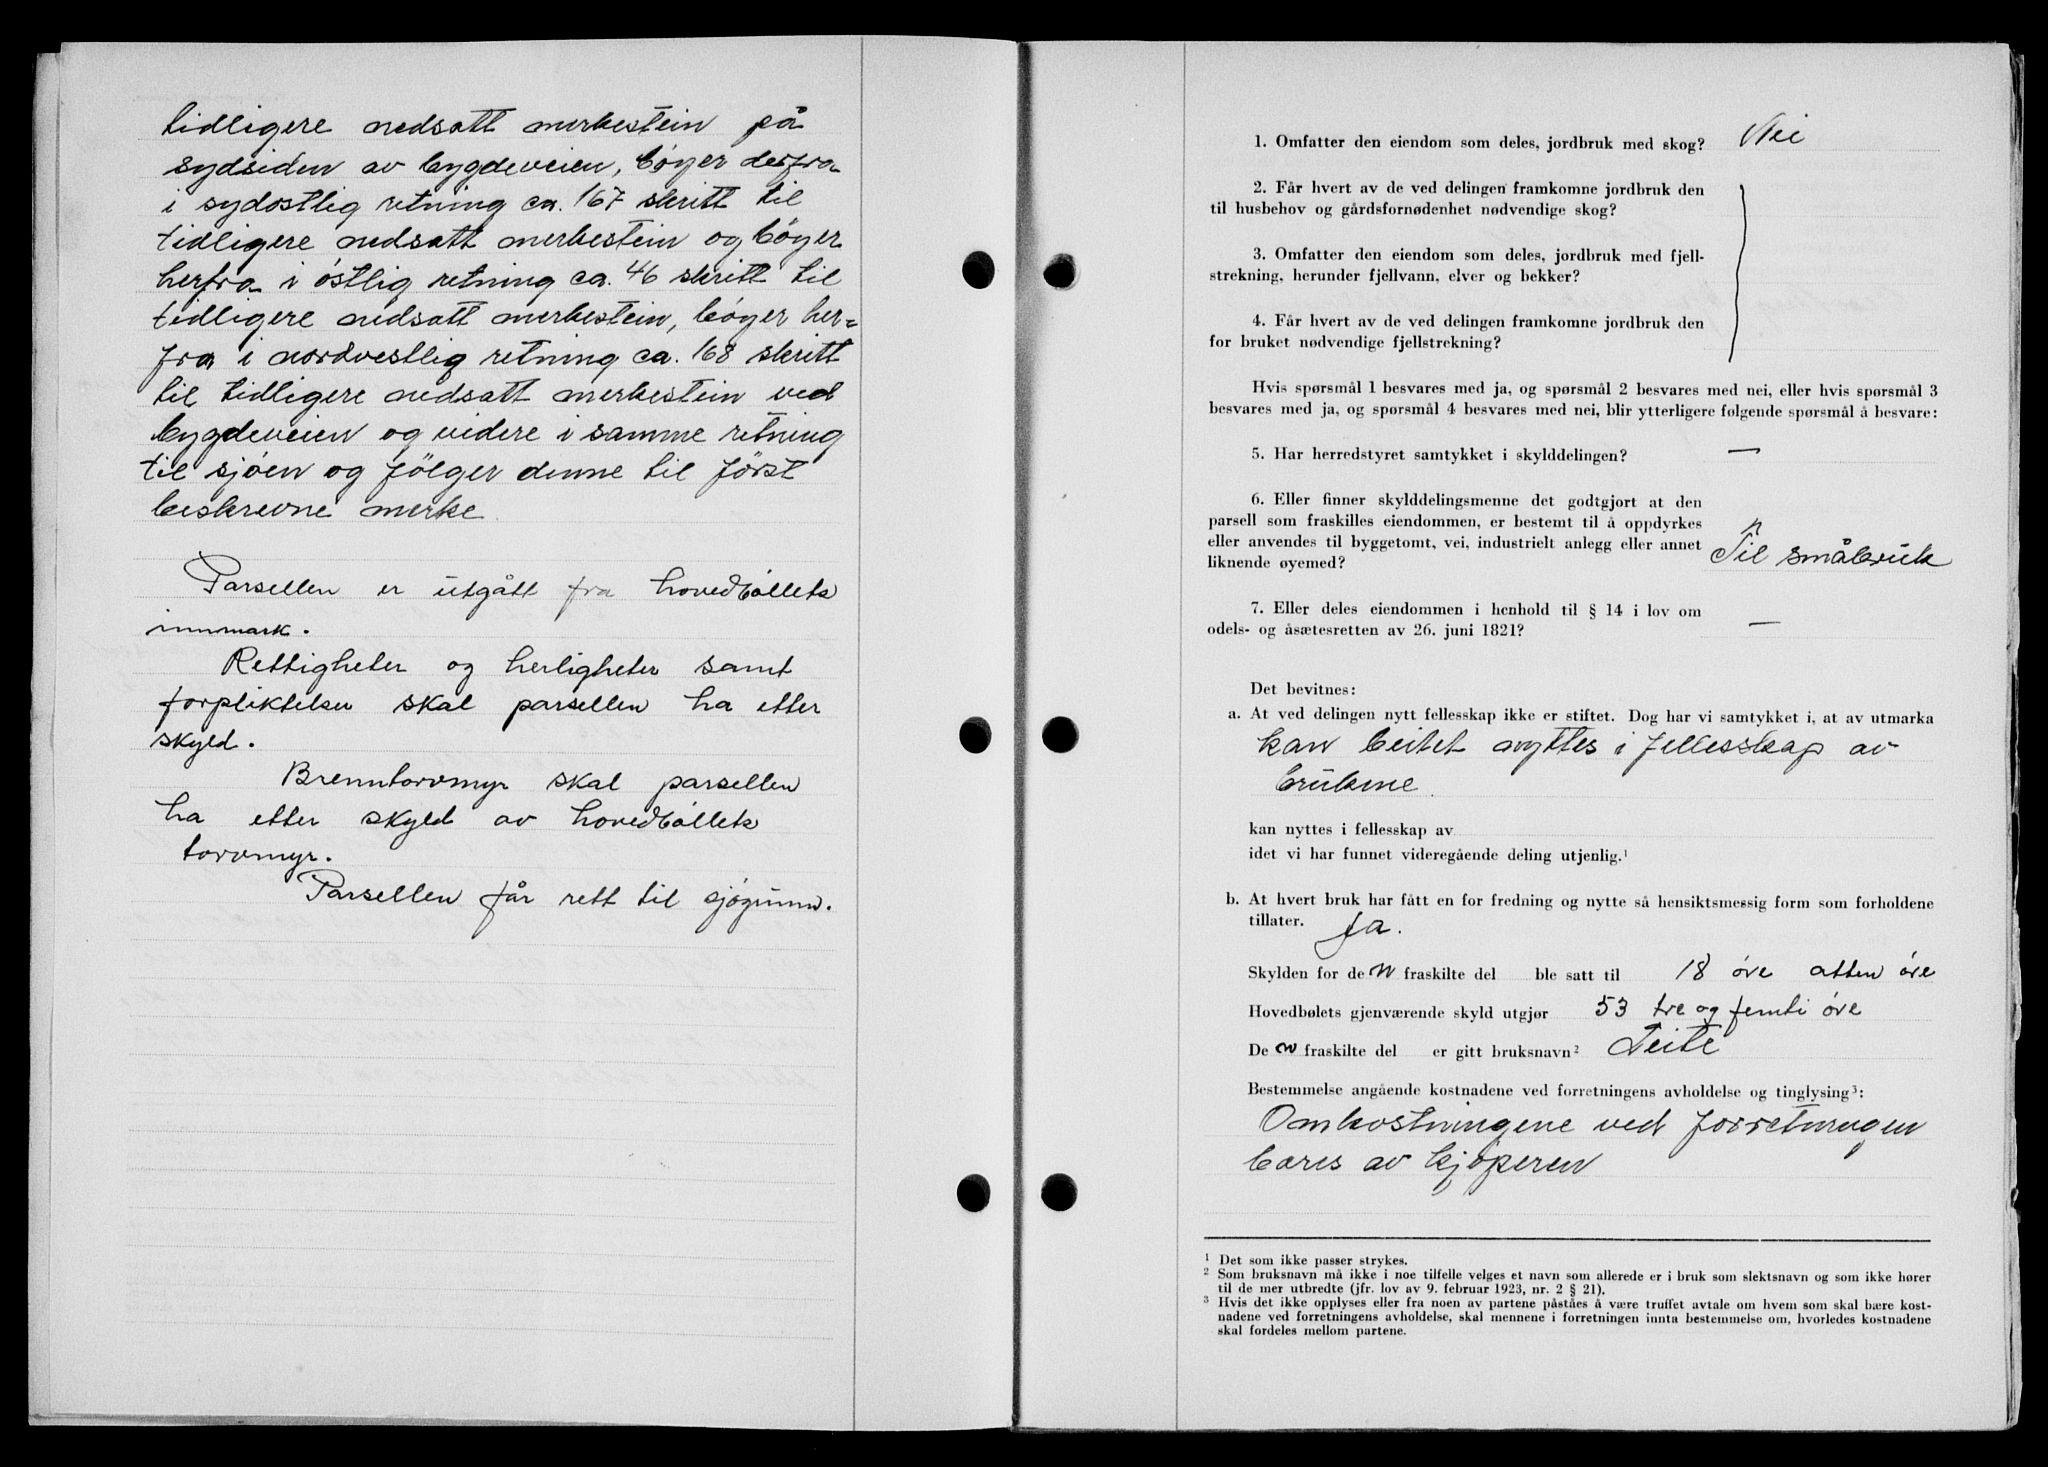 tidligere nedsatt merkestein på
sydsiden av bygdeveien, bøyer derfra
i sydostlig retning ca. 167 skritt til
tidligere nedsatt merkestein og bøyer
herfra i østlig retning ca. 46 skritt til
tidligere nedsatt merkestein, bøyer her=
fra i nordvestlig retning ca. 168 skritt
til tidligere nedsatt merkestein ved
bygdeveien og videre i samme retning
til sjøen og følger denne til først
beskrevne merke.
Parsellen er utgått fra hovedbøllets
innmark.
Rettigheter og herligheter samt
forpliktelser skal parsellen ha etter
skyld.
Brenntorvmyr skal parsellen
ha etter skyld av hovedbøllets
torvmyr.
Parsellen får rett til sjøgrunn.
1. Omfatter den eiendom som deles, jordbruk med skog? Nei
2. Får hvert av de ved delingen framkomne jordbruk den
til husbehov og gårdsfornødenhet nødvendige skog?
3. Omfatter den eiendom som deles, jordbruk med fjell-
strekning, herunder fjellvann, elver og bekker?
4. Får hvert av de ved delingen framkomne jordbruk den
for bruket nødvendige fjellstrekning?
Hvis spørsmål 1 besvares med ja, og spørsmål 2 besvares med nei, eller hvis spørsmål 3
besvares med ja, og spørsmål 4 besvares med nei, blir ytterligere følgende spørsmål å besvare:
5. Har herredstyret samtykket i skylddelingen? —
6. Eller finner skylddelingsmenne det godtgjort at den
parsell som fraskilles eiendommen, er bestemt til å oppdyrkes
eller anvendes til byggetomt, vei, industrielt anlegg eller annet
liknende øyemed? Til småbruk
7. Eller deles eiendommen i henhold til § 14 i lov om
odels- og åsætesretten av 26. juni 1821? —
Det bevitnes:
a. At ved delingen nytt fellesskap ikke er stiftet. Dog har vi samtykket i, at av utmarka
kan beitet nyttes i fellesskap av
brukene.
kan nyttes i fellesskap av
idet vi har funnet videregående deling utjenlig.¹
b. At hvert bruk har fått en for fredning og nytte så hensiktsmessig form som forholdene
tillater. Ja.
Skylden for den fraskilte del ble satt til 18 øre atten øre
Hovedbølets gjenværende skyld utgjør 53 tre og femti øre
Den fraskilte del er gitt bruksnavn² Teite
Bestemmelse angående kostnadene ved forretningens avholdelse og tinglysing³:
Omkostningene ved forretningen
bæres av kjøperen
¹ Det som ikke passer strykes.
² Som bruksnavn må ikke i noe tilfelle velges et navn som allerede er i bruk som slektsnavn og som ikke hører
til de mer utbredte (jfr. lov av 9. februar 1923, nr. 2 § 21).
³ Hvis det ikke opplyses eller fra noen av partene påståes å være truffet avtale om hvem som skal bære kost-
nadene ved forretningens avholdelse, skal mennene i forretningen innta bestemmelse om, hvorledes kostnadene
skal fordeles mellom partene.